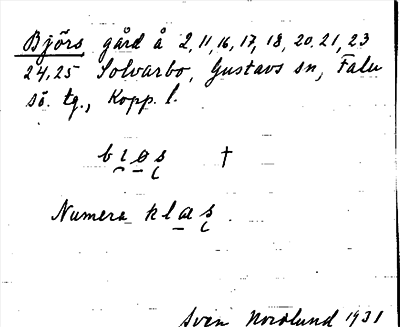 Björs, gård å 2, 11, 16, 17, 18, 20, 21, 23
24, 25 Solvarbo, Gustavs sn, Falu
sö. tg., Kopp. l.
†
Numera klas.
Sven Nordlund 1931